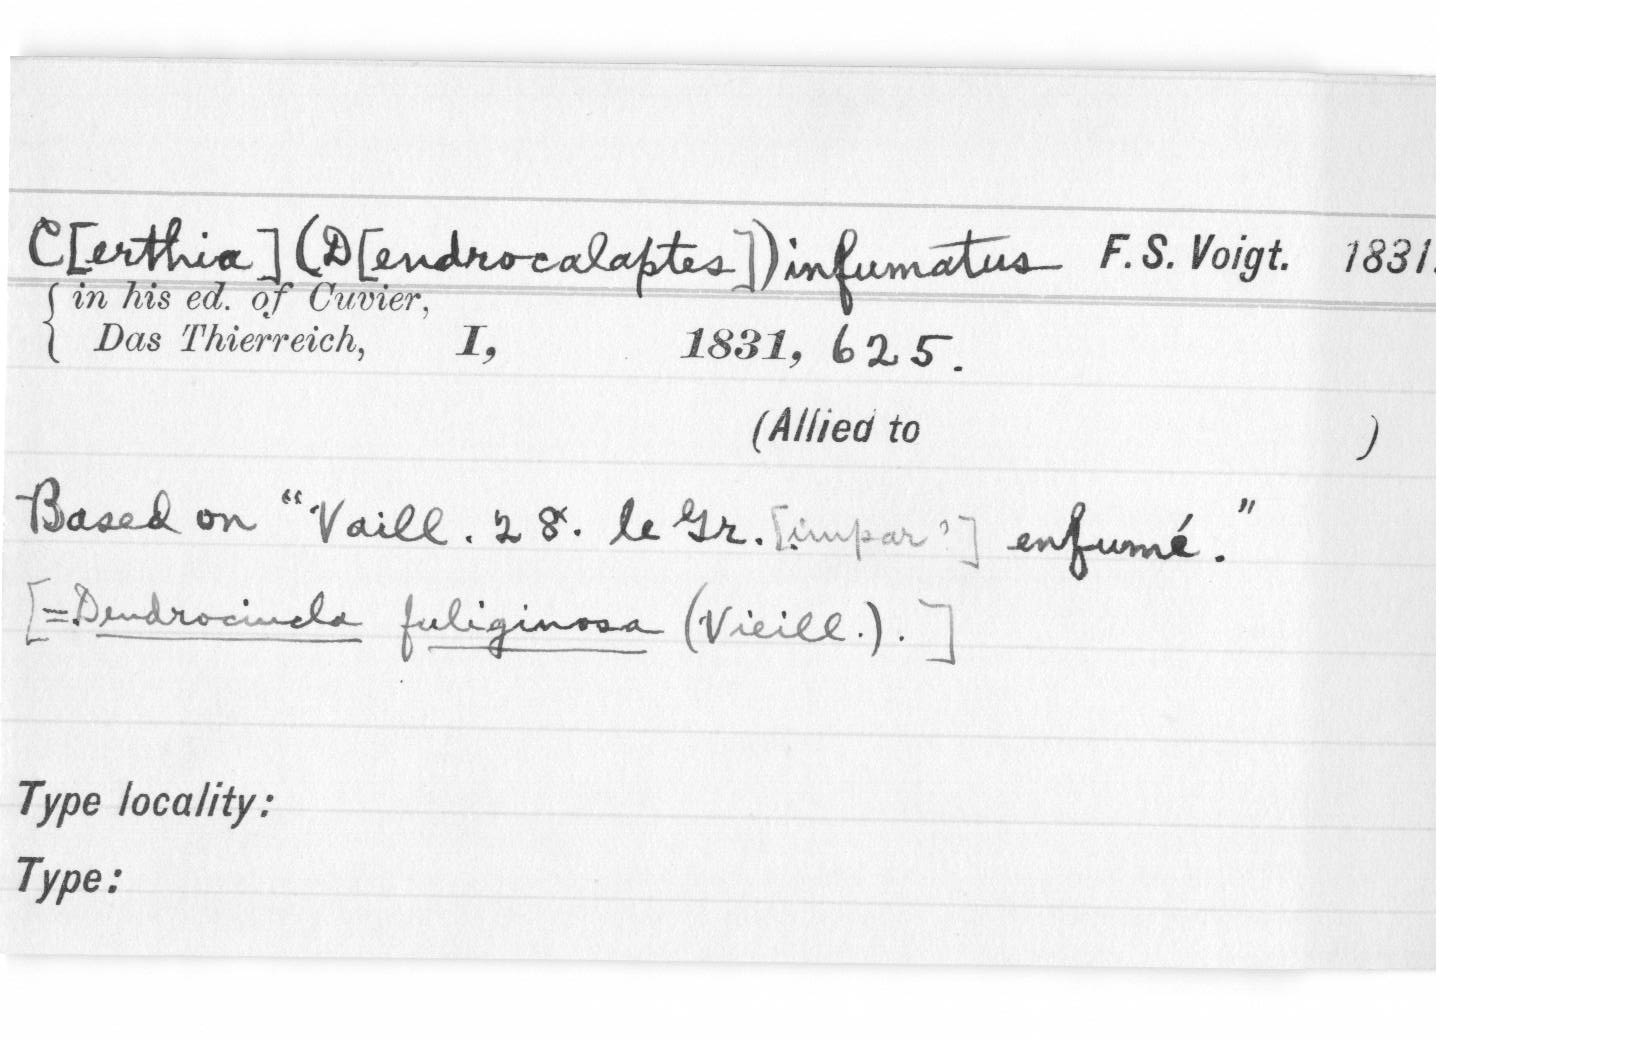 C[erthia] (D[endrocalaptes]) infumatus F. S. Voigt. 1831.
in his ed. of Cuvier,
Das Thierreich, I, 1831, 625.
(Allied to )
Based on "Vaill. 28. le Gr. [impar'] enfumé."
[=Dendrocincla fuliginosa (Vieill.).]
Type locality:
Type: